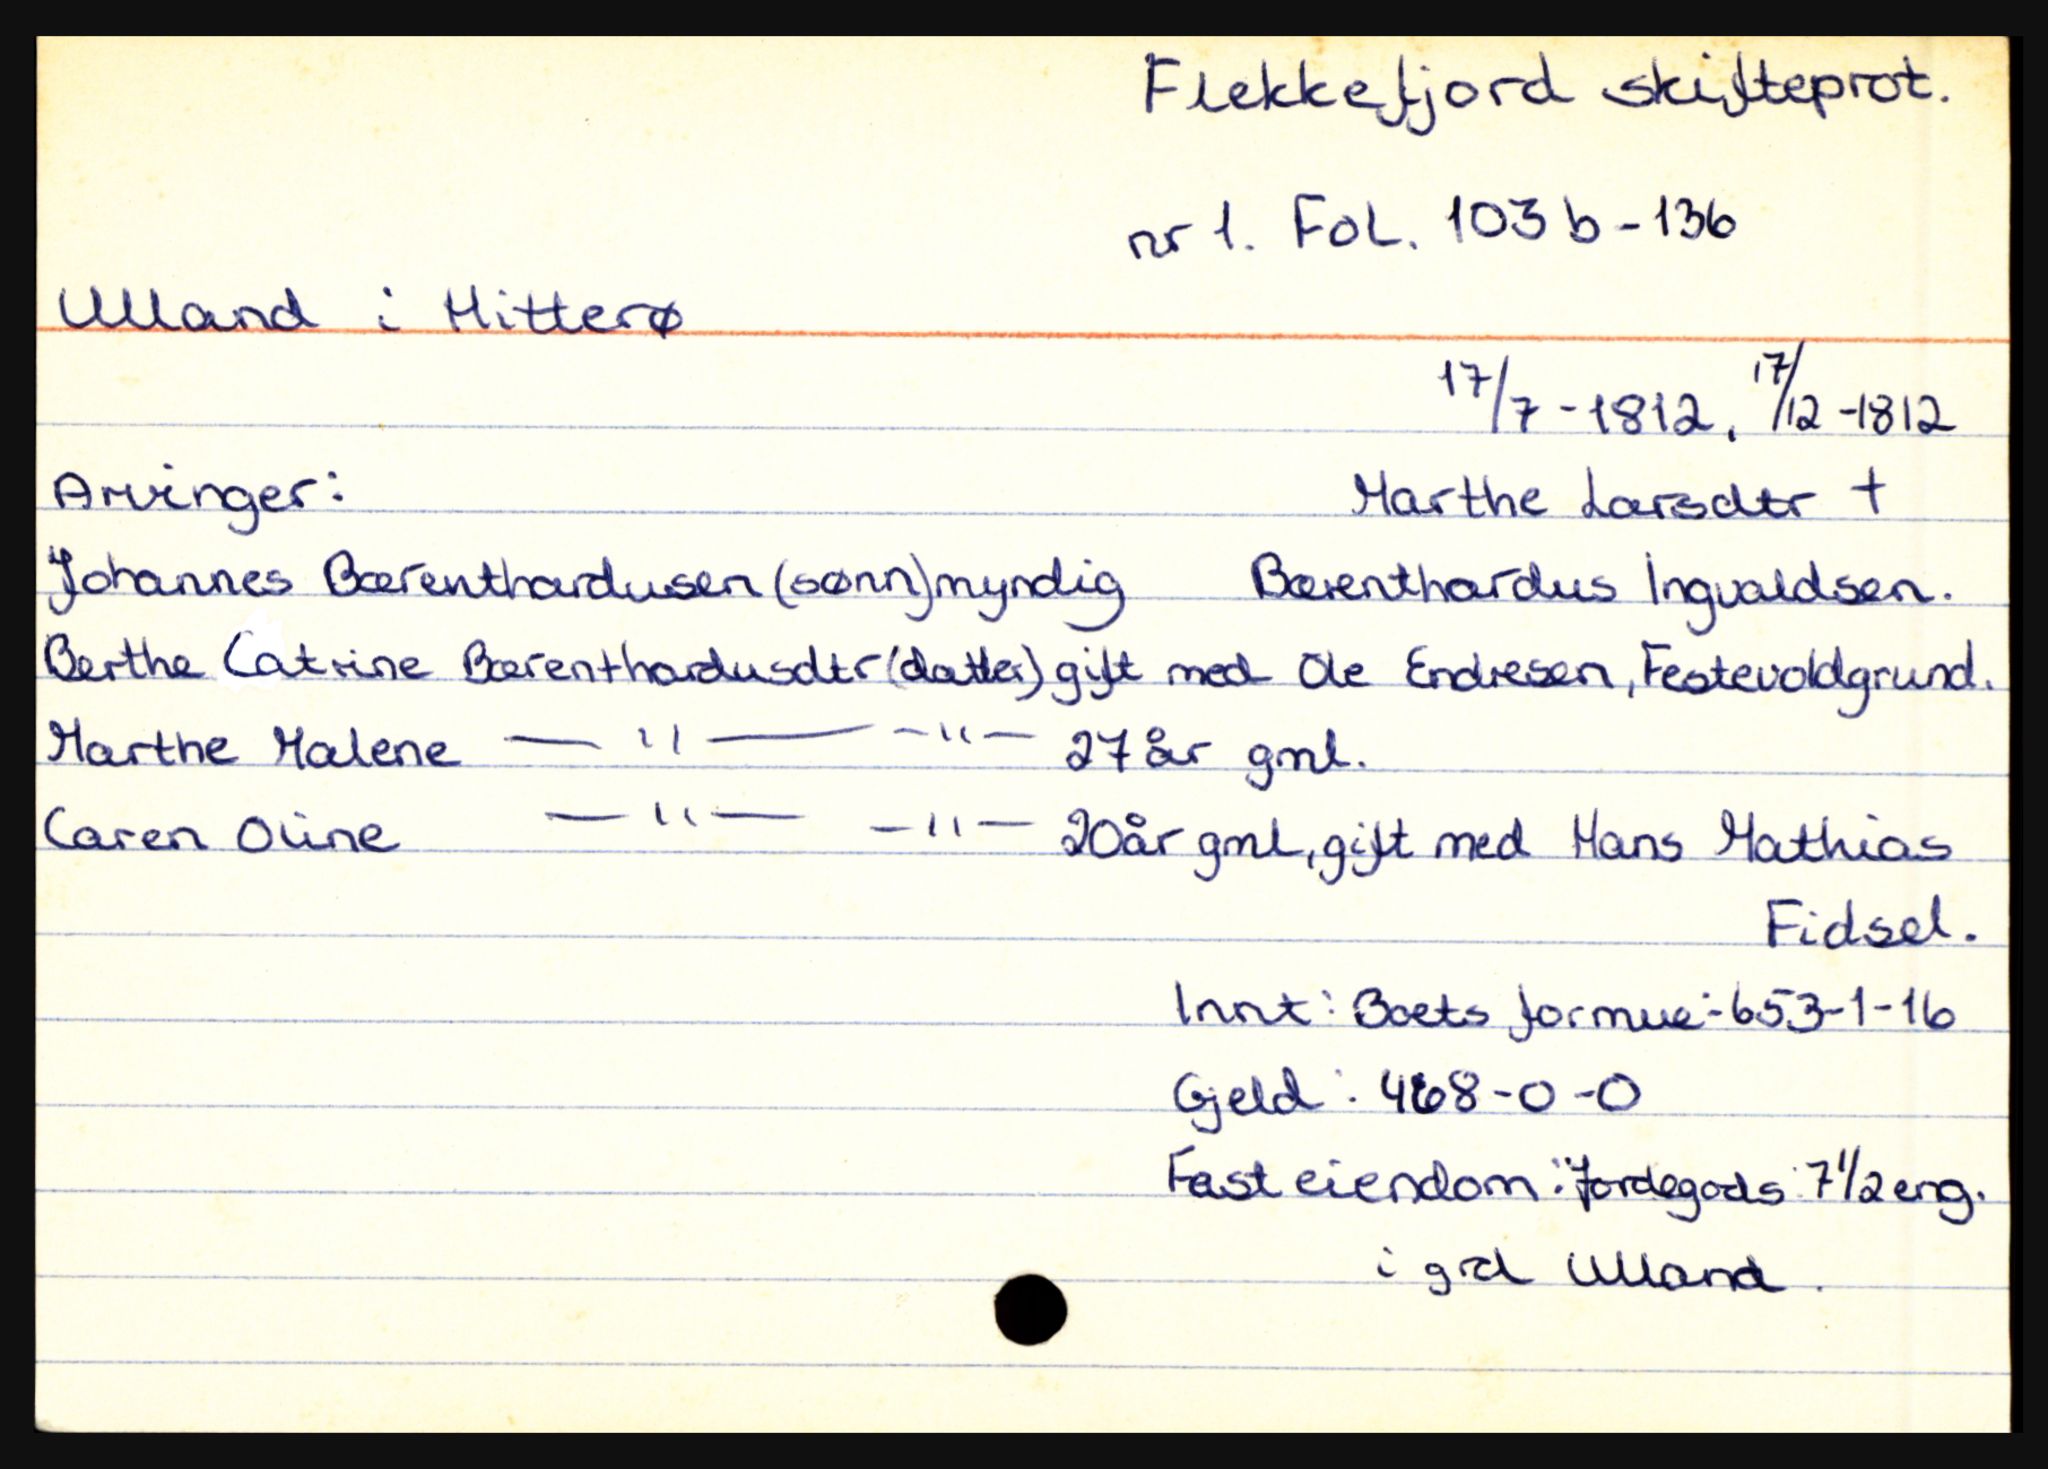 Flekkefjord skifteprot.
nr 1. Fol. 103 b - 136
Ulland i Hitterø
17/7 - 1812, 17/12 - 1812
Arvinger:
Marthe Larsdtr †
Johannes Bærenthardusen (sønn) myndig Bærenthardus Ingvaldsen.
Berthe Catrine Bærenthardusdtr (datter) gift med Ole Endresen, Festevoldgrund.
Marthe Malene — " — — " — 27 år gml.
Caren Oline — " — — " — 20 år gml, gift med Hans Mathias
Fidsel.
Innt: Boets formue: 653-1-16
Gjeld: 468-0-0
Fast eiendom: Jordegods: 7 1/2 eng.
i grd Ulland.